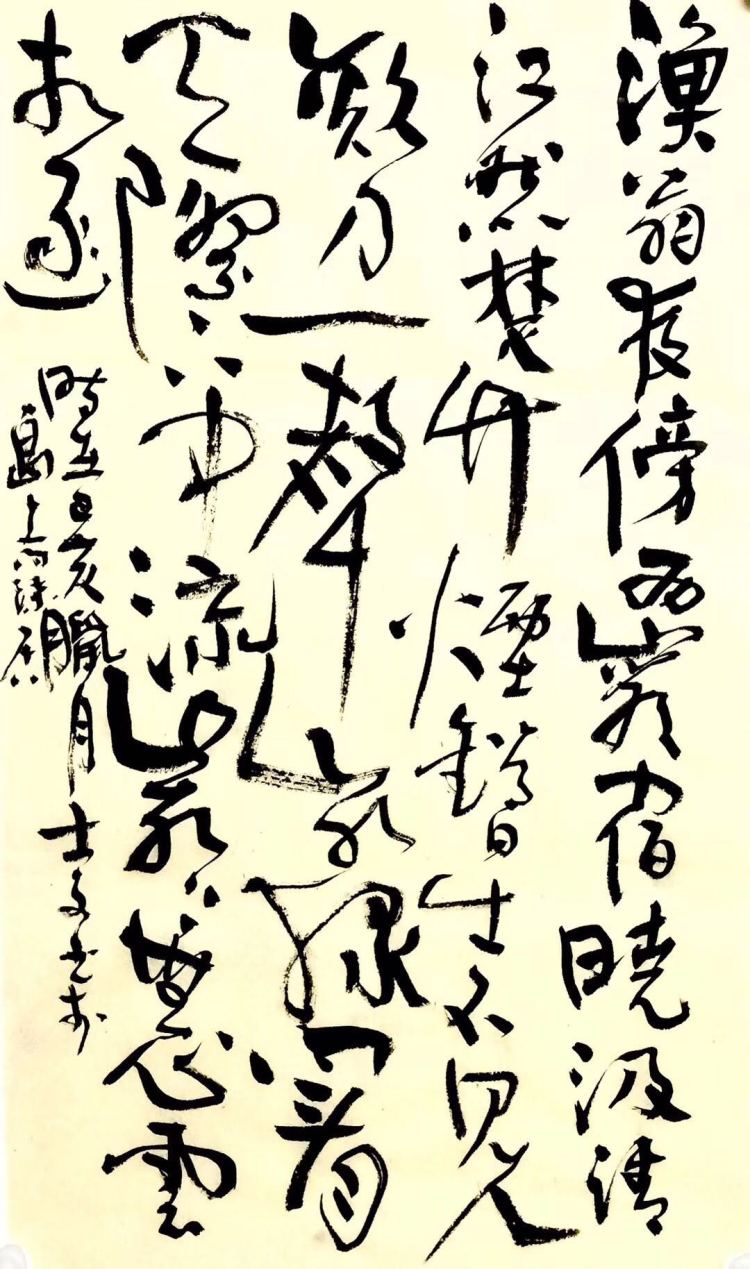 漁翁夜傍西巖宿曉汲清
江然楚竹煙銷日出不見人
欸乃一聲山水綠回看
天際下中流巖上無心雲
相逐
時在己亥臘月士文書於
島上